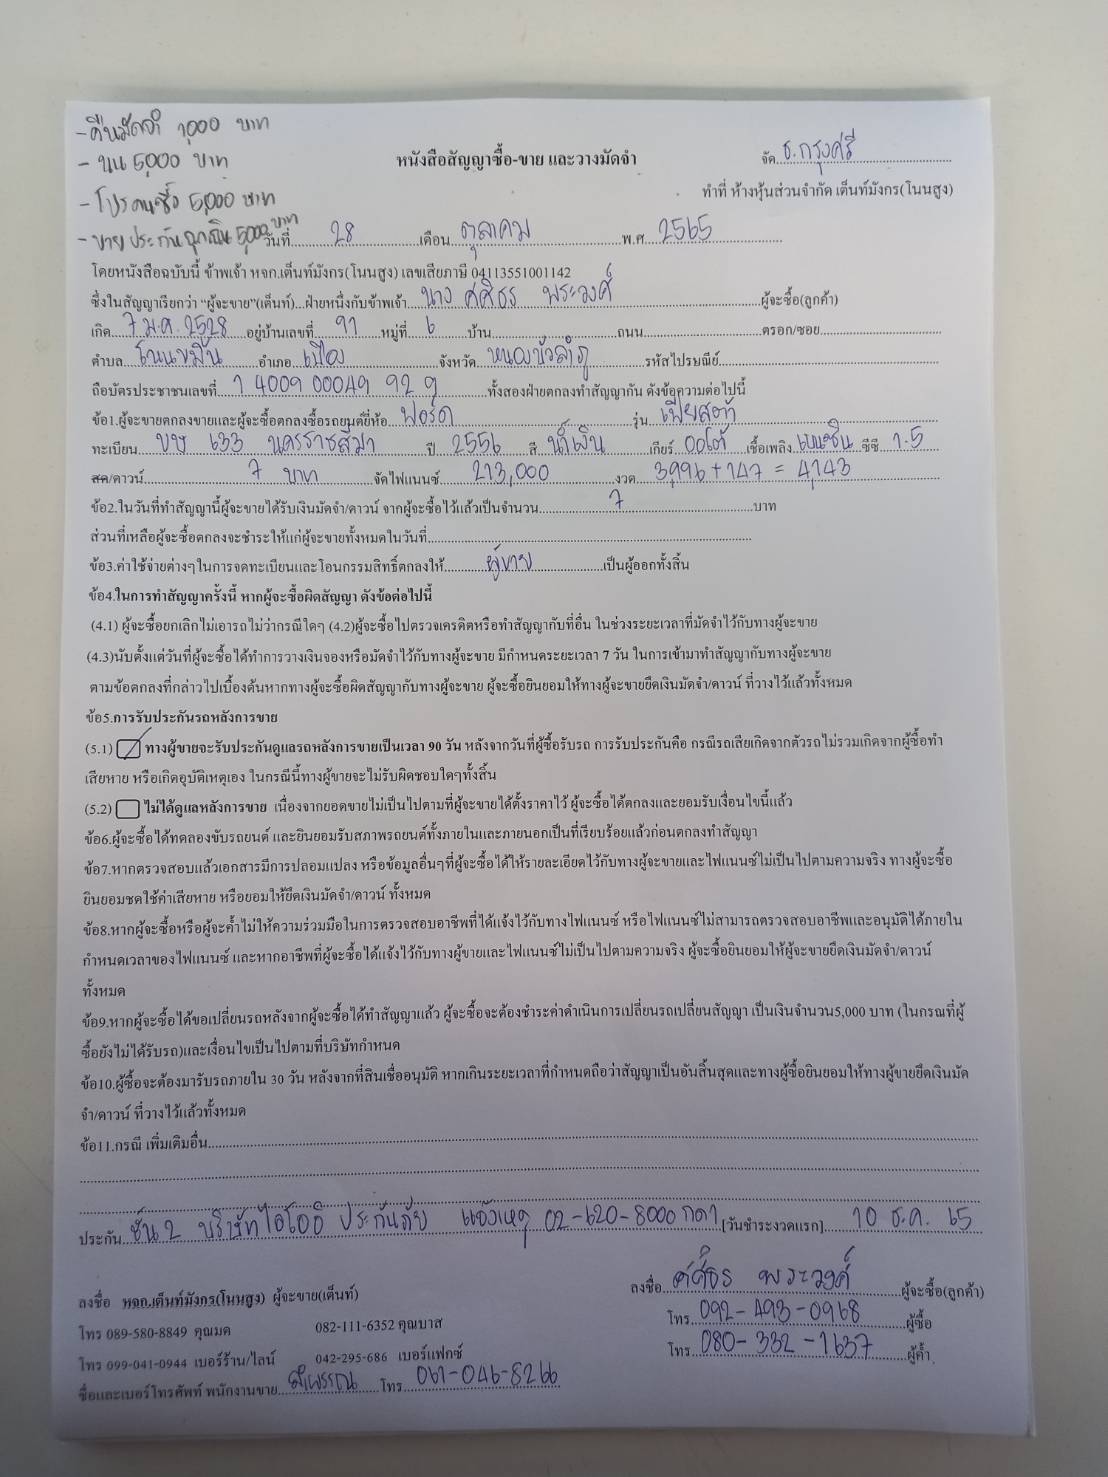 -คืนมัดจำ 1,000 บาท
- แนน 5,000 บาท
หนังสือสัญญาซื้อ-ขาย และวางมัดจำ
จัด ธ.กรุงศรี
- โปรคนซื้อ 5,000 บาท
ทำที่ ห้างหุ้นส่วนจำกัด เต็นท์มังกร(โนนสูง)
- ขาย ประกันฉุกเฉิน 5,000 บาท
วันที่ 28 เดือน ตุลาคม พ.ศ. 2565
โดยหนังสือฉบับนี้ ข้าพเจ้า หจก.เต็นท์มังกร(โนนสูง) เลขเสียภาษี 04113551001142
ซึ่งในสัญญาเรียกว่า "ผู้จะขาย"(เต็นท์)...ฝ่ายหนึ่งกับข้าพเจ้า นาง ศศิธร พระวงศ์ ผู้จะซื้อ(ลูกค้า)
เกิด 7 ม.ค. 2528 อยู่บ้านเลขที่ 91 หมู่ที่ 6 บ้าน ถนน ตรอก/ซอย
ตำบล โนนขมิ้น อำเภอ เมือง จังหวัด หนองบัวลำภู รหัสไปรษณีย์
ถือบัตรประชาชนเลขที่ 1 4009 00049 92 9 ทั้งสองฝ่ายตกลงทำสัญญากัน ดังข้อความต่อไปนี้
ข้อ1.ผู้จะขายตกลงขายและผู้จะซื้อตกลงซื้อรถยนต์ยี่ห้อ ฟอร์ด รุ่น เฟียสต้า
ทะเบียน ขษ 633 นครราชสีมา ปี 2556 สี น้ำเงิน เกียร์ ออโต้ เชื้อเพลิง เบนซิน ซีซี 1.5
สด/ดาวน์ 7 บาท จัดไฟแนนซ์ 213,000 งวด 3,996 + 147 = 4,143
ข้อ2.ในวันที่ทำสัญญานี้ผู้จะขายได้รับเงินมัดจำ/ดาวน์ จากผู้จะซื้อไว้แล้วเป็นจำนวน 7 บาท
ส่วนที่เหลือผู้จะซื้อตกลงจะชำระให้แก่ผู้จะขายทั้งหมดในวันที่
ข้อ3.ค่าใช้จ่ายต่างๆในการจดทะเบียนและโอนกรรมสิทธิ์ตกลงให้ ผู้ขาย เป็นผู้ออกทั้งสิ้น
ข้อ4.ในการทำสัญญาครั้งนี้ หากผู้จะซื้อผิดสัญญา ดังข้อต่อไปนี้
(4.1) ผู้จะซื้อยกเลิกไม่เอารถไม่ว่ากรณีใดๆ (4.2)ผู้จะซื้อไปตรวจเครดิตหรือทำสัญญากับที่อื่น ในช่วงระยะเวลาที่มัดจำไว้กับทางผู้จะขาย
(4.3)นับตั้งแต่วันที่ผู้จะซื้อได้ทำการวางเงินจองหรือมัดจำไว้กับทางผู้จะขาย มีกำหนดระยะเวลา 7 วัน ในการเข้ามาทำสัญญากับทางผู้จะขาย
ตามข้อตกลงที่กล่าวไปเบื้องต้นหากทางผู้จะซื้อผิดสัญญากับทางผู้จะขาย ผู้จะซื้อยินยอมให้ทางผู้จะขายยึดเงินมัดจำ/ดาวน์ ที่วางไว้แล้วทั้งหมด
ข้อ5.การรับประกันรถหลังการขาย
(5.1) ทางผู้ขายจะรับประกันดูแลรถหลังการขายเป็นเวลา 90 วัน หลังจากวันที่ผู้ซื้อรับรถ การรับประกันคือ กรณีรถเสียเกิดจากตัวรถ ไม่รวมเกิดจากผู้ซื้อทำ
เสียหาย หรือเกิดอุบัติเหตุเอง ในกรณีนี้ทางผู้ขายจะไม่รับผิดชอบใดๆทั้งสิ้น
(5.2) ไม่ได้ดูแลหลังการขาย เนื่องจากยอดขายไม่เป็นไปตามที่ผู้จะขายได้ตั้งราคาไว้ ผู้จะซื้อได้ตกลงและยอมรับเงื่อนไขนี้แล้ว
ข้อ6.ผู้จะซื้อได้ทดลองขับรถยนต์ และยินยอมรับสภาพรถยนต์ทั้งภายในและภายนอกเป็นที่เรียบร้อยแล้วก่อนตกลงทำสัญญา
ข้อ7.หากตรวจสอบแล้วเอกสารมีการปลอมแปลง หรือข้อมูลอื่นๆที่ผู้จะซื้อได้ให้รายละเอียดไว้กับทางผู้จะขายและไฟแนนซ์ไม่เป็นไปตามความจริง ทางผู้จะซื้อ
ยินยอมชดใช้ค่าเสียหาย หรือยอมให้ยึดเงินมัดจำ/ดาวน์ ทั้งหมด
ข้อ8.หากผู้จะซื้อหรือผู้จะค้ำไม่ให้ความร่วมมือในการตรวจสอบอาชีพที่ได้แจ้งไว้กับทางไฟแนนซ์ หรือไฟแนนซ์ไม่สามารถตรวจสอบอาชีพและอนุมัติได้ภายใน
กำหนดเวลาของไฟแนนซ์ และหากอาชีพที่ผู้จะซื้อได้แจ้งไว้กับทางผู้ขายและไฟแนนซ์ไม่เป็นไปตามความจริง ผู้จะซื้อยินยอมให้ผู้จะขายยึดเงินมัดจำ/ดาวน์
ทั้งหมด
ข้อ9.หากผู้จะซื้อได้ขอเปลี่ยนรถหลังจากผู้จะซื้อได้ทำสัญญาแล้ว ผู้จะซื้อจะต้องชำระค่าดำเนินการเปลี่ยนรถเปลี่ยนสัญญา เป็นเงินจำนวน5,000 บาท (ในกรณที่ผู้
ซื้อยังไม่ได้รับรถ)และเงื่อนไขเป็นไปตามที่บริษัทกำหนด
ข้อ10.ผู้ซื้อจะต้องมารับรถภายใน 30 วัน หลังจากที่สินเชื่ออนุมัติ หากเกินระยะเวลาที่กำหนดถือว่าสัญญาเป็นอันสิ้นสุดและทางผู้ซื้อยินยอมให้ทางผู้ขายยึดเงินมัด
จำ/ดาวน์ ที่วางไว้แล้วทั้งหมด
ข้อ11.กรณี เพิ่มเติมอื่น
ประกัน ชั้น 2 บริษัทไอโออิ ประกันภัย แจ้งเหตุ 02-620-8000 กด1 [วันชำระงวดแรก] 10 ธ.ค. 65
ลงชื่อ หจก.เต็นท์มังกร(โนนสูง) ผู้จะขาย(เต็นท์)
ลงชื่อ ศศิธร พระวงศ์ ผู้จะซื้อ(ลูกค้า)
โทร 089-580-8849 คุณมด 082-111-6352 คุณบาส
โทร 092-493-0968 ผู้ซื้อ
โทร 099-041-0944 เบอร์ร้าน/ไลน์ 042-295-686 เบอร์แฟกซ์
โทร 080-332-1637 ผู้ค้ำ
ชื่อและเบอร์โทรศัพท์ พนักงานขาย ลำพรรณ โทร 061-046-8266